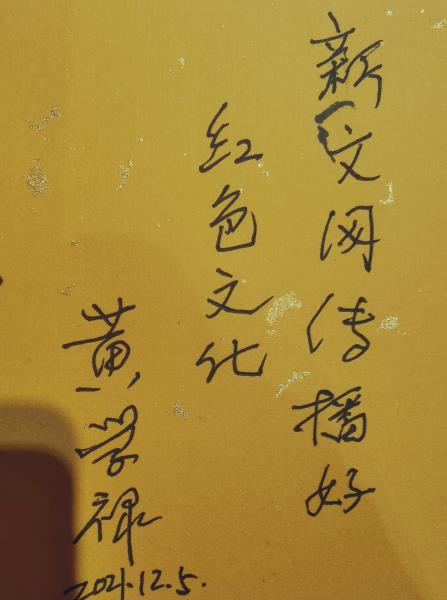 新文网传播好
红色文化
黄学禄
2021.12.5.